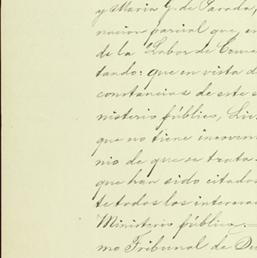 y Maria G. de Parada,
nacion parcial que, en
de la Labor de
tando: que en vista d
constancias de este
nisterio público, Lic.
que no tiene inconven
nio de que se trata
que han sido citados
te todos los interesa
Ministerio público.
mo Tribunal de